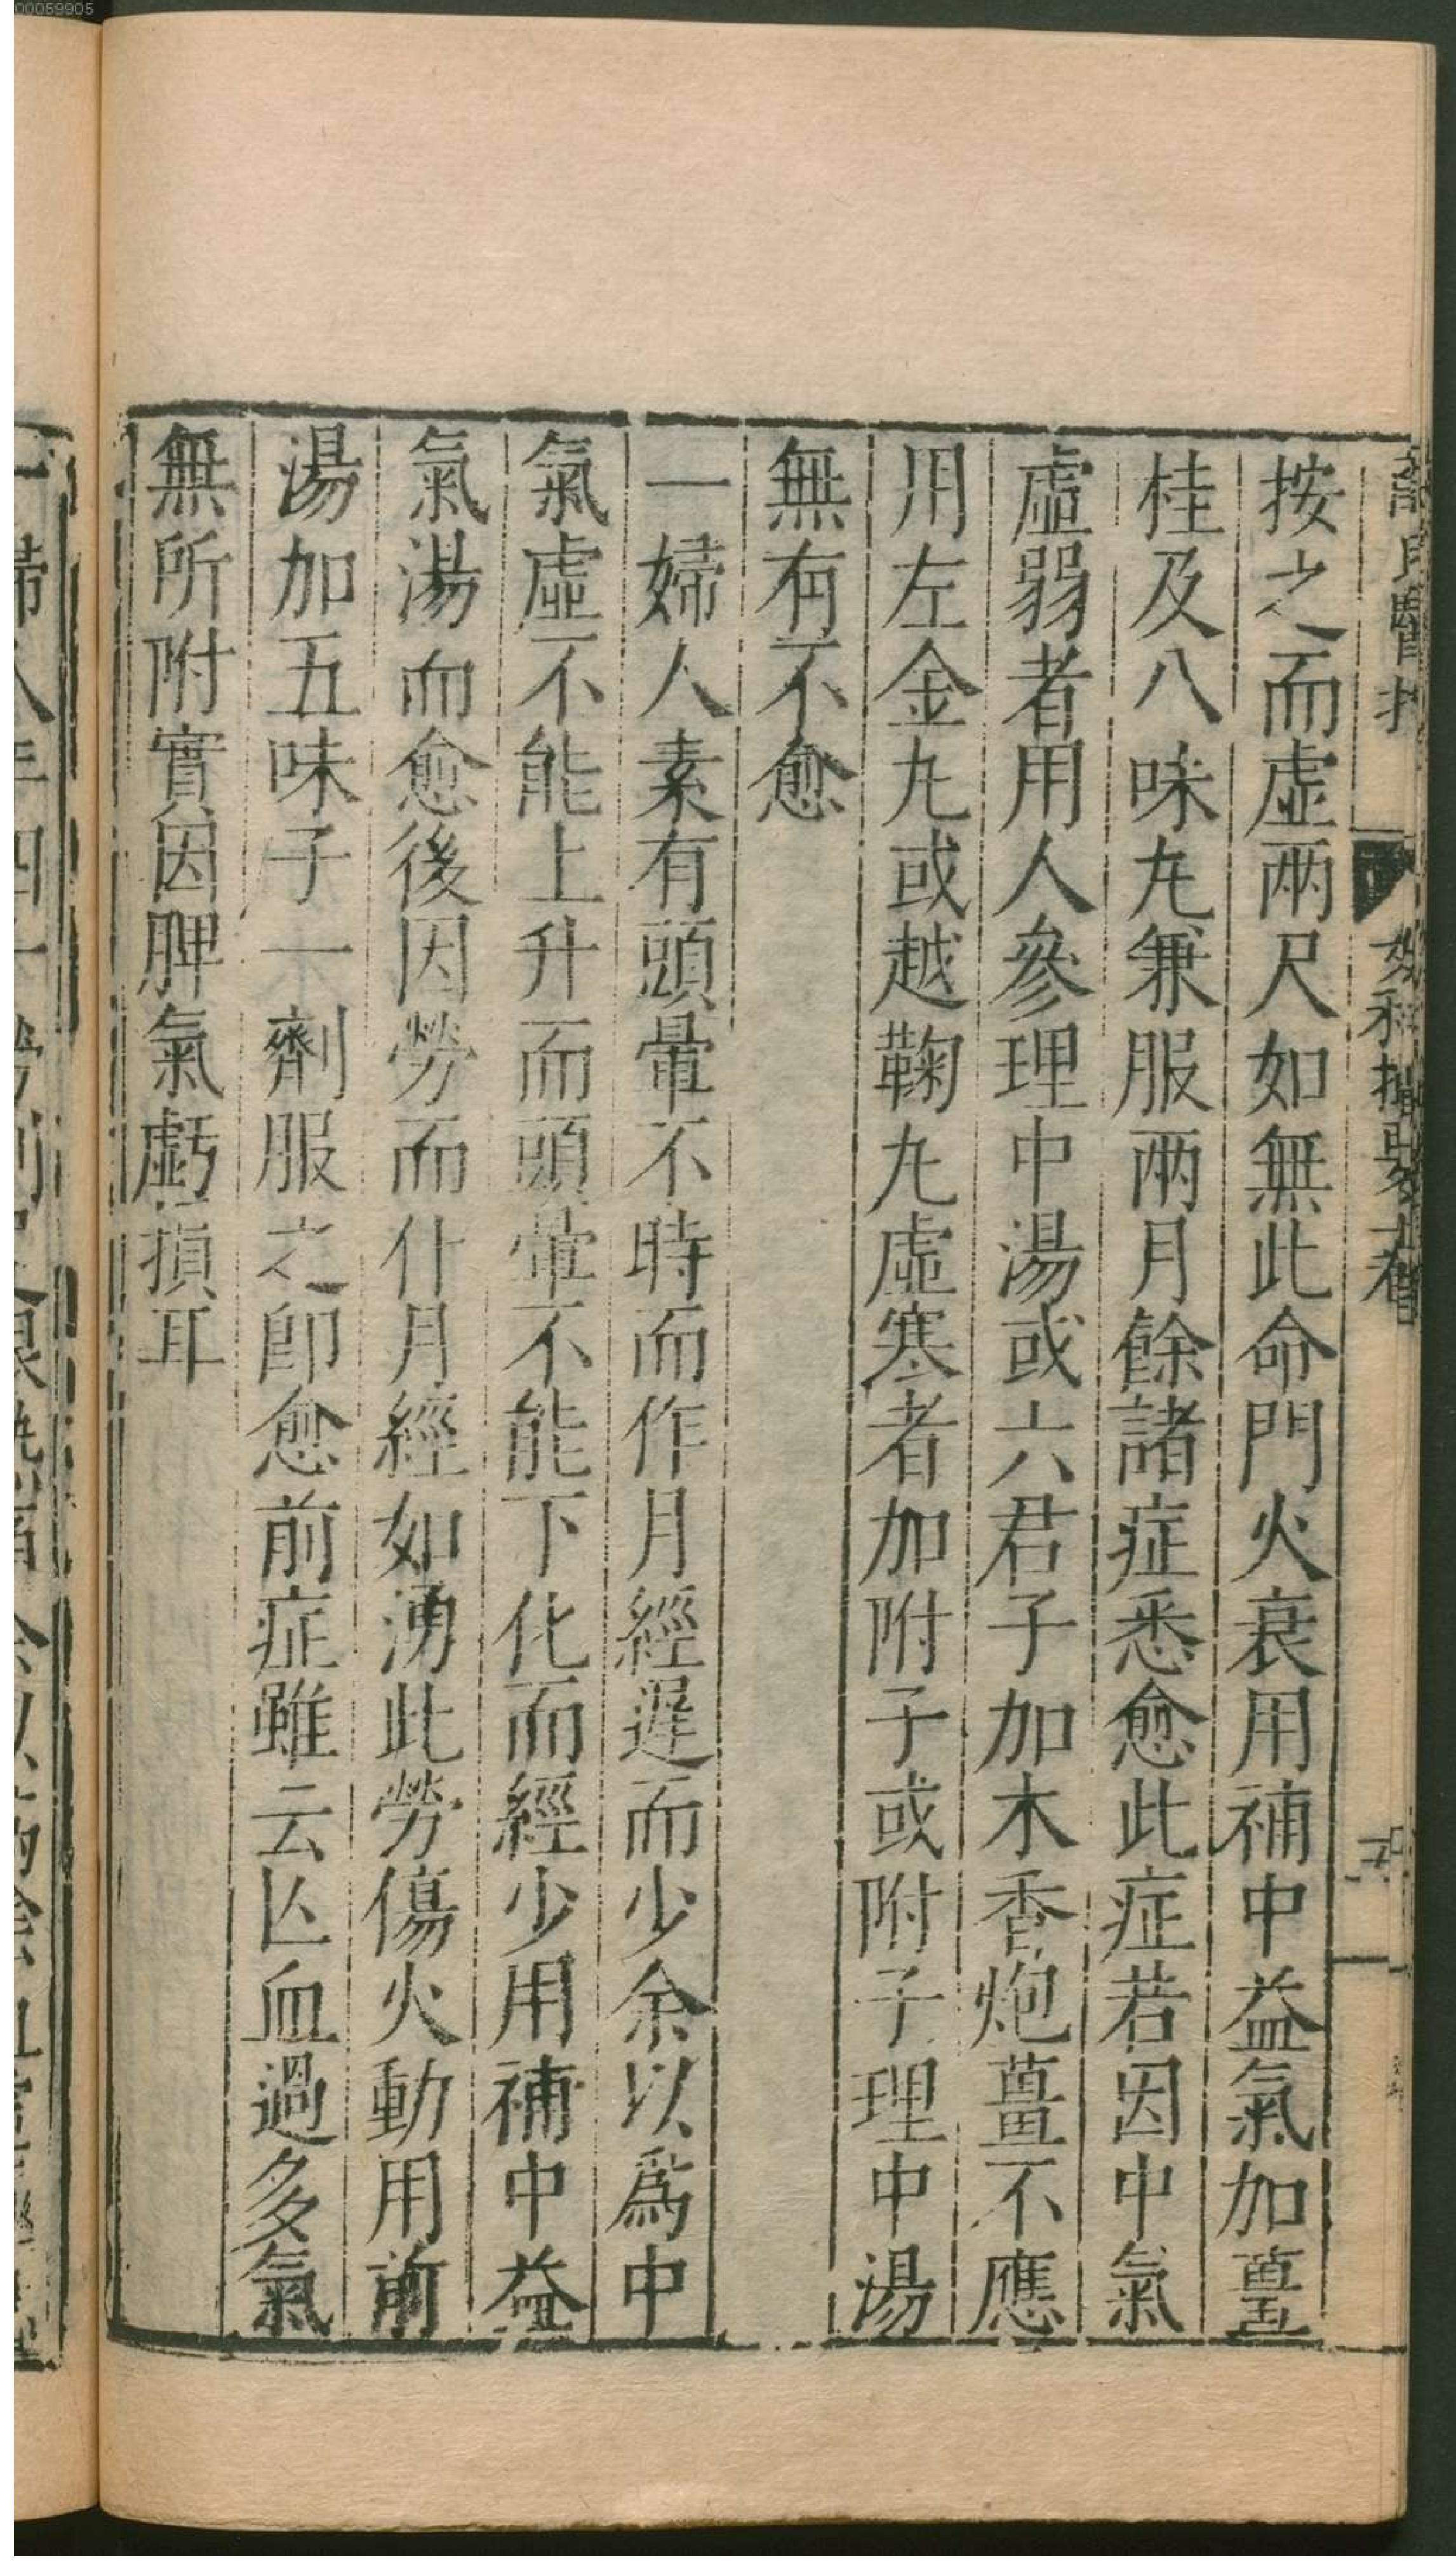 按之而虛兩尺如無此命門火衰用補中益氣加薑
桂及八味丸兼服兩月餘諸症悉愈此症若因中氣
虛弱者用人參理中湯或六君子加木香炮薑不應
用左金丸或越鞠丸虛寒者加附子或附子理中湯
無有不愈
一婦人素有頭暈不時而作月經遲而少余以為中
氣虛不能上升而頭暈不能下化而經少用補中益
氣湯而愈後因勞而仆月經如湧此勞傷火動用前
湯加五味子一劑服之卽愈前症雖云亾血過多氣
無所附實因脾氣虧損耳
00059905